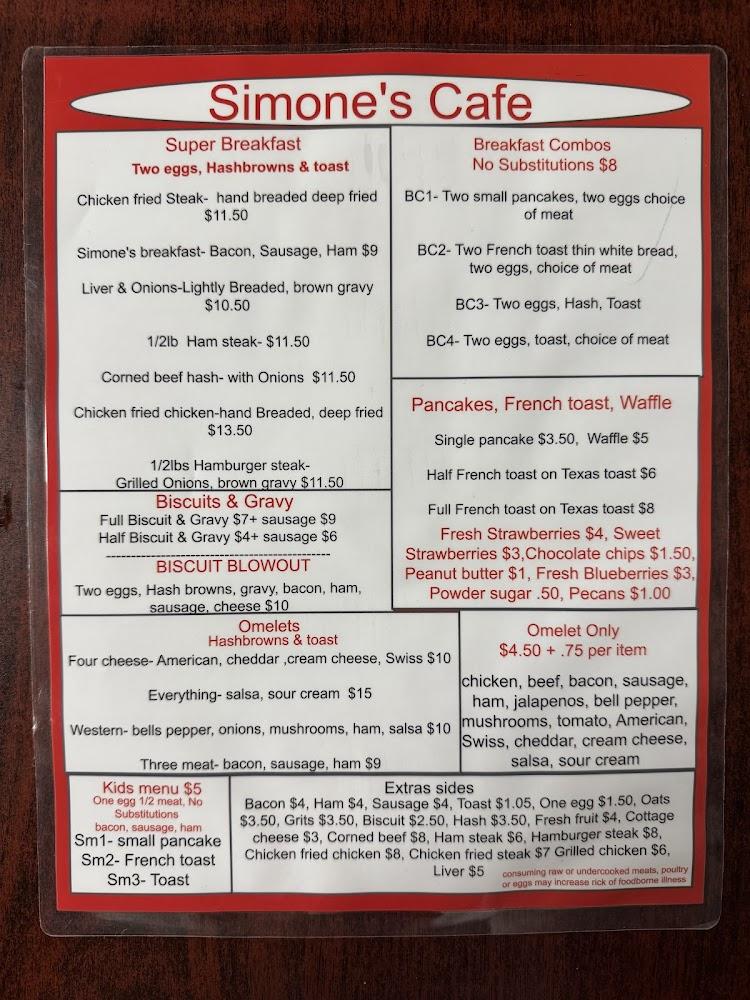 Simone's Cafe
Super Breakfast
Two eggs, Hashbrowns & toast
Chicken fried Steak- hand breaded deep fried
$11.50
Simone's breakfast- Bacon, Sausage, Ham $9
Liver & Onions-Lightly Breaded, brown gravy
$10.50
1/2lb Ham steak- $11.50
Corned beef hash- with Onions $11.50
Chicken fried chicken-hand Breaded, deep fried
$13.50
1/2lbs Hamburger steak-
Grilled Onions, brown gravy $11.50
Biscuits & Gravy
Full Biscuit & Gravy $7+ sausage $9
Half Biscuit & Gravy $4+ sausage $6
------------------------------------------
BISCUIT BLOWOUT
Two eggs, Hash browns, gravy, bacon, ham,
sausage, cheese $10
Breakfast Combos
No Substitutions $8
BC1- Two small pancakes, two eggs choice
of meat
BC2- Two French toast thin white bread,
two eggs, choice of meat
BC3- Two eggs, Hash, Toast
BC4- Two eggs, toast, choice of meat
Pancakes, French toast, Waffle
Single pancake $3.50, Waffle $5
Half French toast on Texas toast $6
Full French toast on Texas toast $8
Fresh Strawberries $4, Sweet
Strawberries $3,Chocolate chips $1.50,
Peanut butter $1, Fresh Blueberries $3,
Powder sugar .50, Pecans $1.00
Omelets
Hashbrowns & toast
Four cheese- American, cheddar ,cream cheese, Swiss $10
Everything- salsa, sour cream $15
Western- bells pepper, onions, mushrooms, ham, salsa $10
Three meat- bacon, sausage, ham $9
Omelet Only
$4.50 + .75 per item
chicken, beef, bacon, sausage,
ham, jalapenos, bell pepper,
mushrooms, tomato, American,
Swiss, cheddar, cream cheese,
salsa, sour cream
Kids menu $5
One egg 1/2 meat, No
Substitutions
bacon, sausage, ham
Sm1- small pancake
Sm2- French toast
Sm3- Toast
Extras sides
Bacon $4, Ham $4, Sausage $4, Toast $1.05, One egg $1.50, Oats
$3.50, Grits $3.50, Biscuit $2.50, Hash $3.50, Fresh fruit $4, Cottage
cheese $3, Corned beef $8, Ham steak $6, Hamburger steak $8,
Chicken fried chicken $8, Chicken fried steak $7 Grilled chicken $6,
Liver $5
consuming raw or undercooked meats, poultry
or eggs may increase rick of foodborne illness